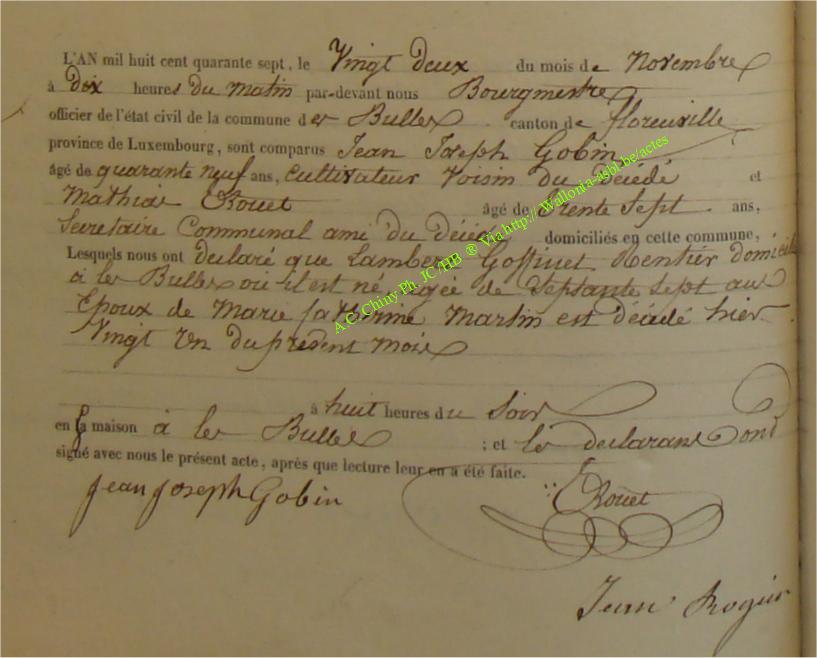 L'AN mil huit cent quarante sept, le Vingt deux du mois de Novembre
à dix heures du matin par-devant nous Bourgmestre
officier de l'état civil de la commune des Bulles canton de florenville
province de Luxembourg, sont comparus Jean Joseph Gobin
âgé de quarante neuf ans, Cultivateur Voisin du Décédé et
Mathias Rouet âgé de Trente Sept ans,
Secretaire Communal ami du décédé domiciliés en cette commune,
Lesquels nous ont declaré que Lambert Goffinet Rentier domicilié
à les Bulles où il est né, agée de Septante Sept ans
Epoux de Marie Catherine Martin est décédé hier
Vingt Un du présent mois
à huit heures du Soir
en sa maison à les Bulles ; et les declarans ont
signé avec nous le présent acte, après que lecture leur en a été faite.
Jean Joseph Gobin Rouet
Jean Rogier
A.C. Chiny Ph. JC/HB ® Via http://Wallonia-asbl-be/actes